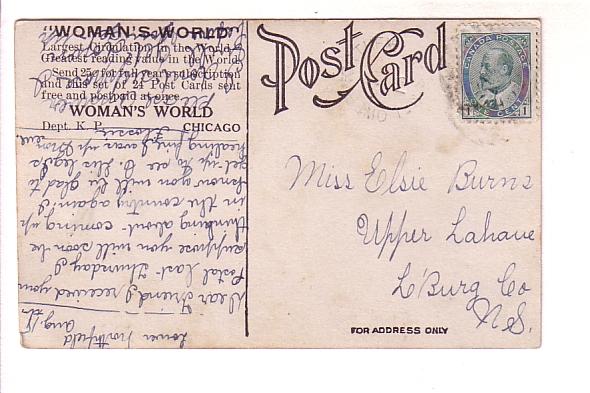 "WOMAN'S WORLD"
Largest Circulation in the World
Greatest reading value in the World
Send 25c for full year's subscription
and this set of 21 Post Cards sent
free and postpaid at once.
WOMAN'S WORLD
Dept. K. P. CHICAGO
Post Card
CANADA POSTAGE
1 CENT 1
Miss Elsie Burns
Upper Lahave
L'Burg Co
N.S.
FOR ADDRESS ONLY
Lower Northfield
Aug.
Dear Friend I received your
Postal last Thursday I
suppose you will soon be
thinking about coming up
in the country again. I
know you will be glad to
get up to see D. His leg is
healing fine